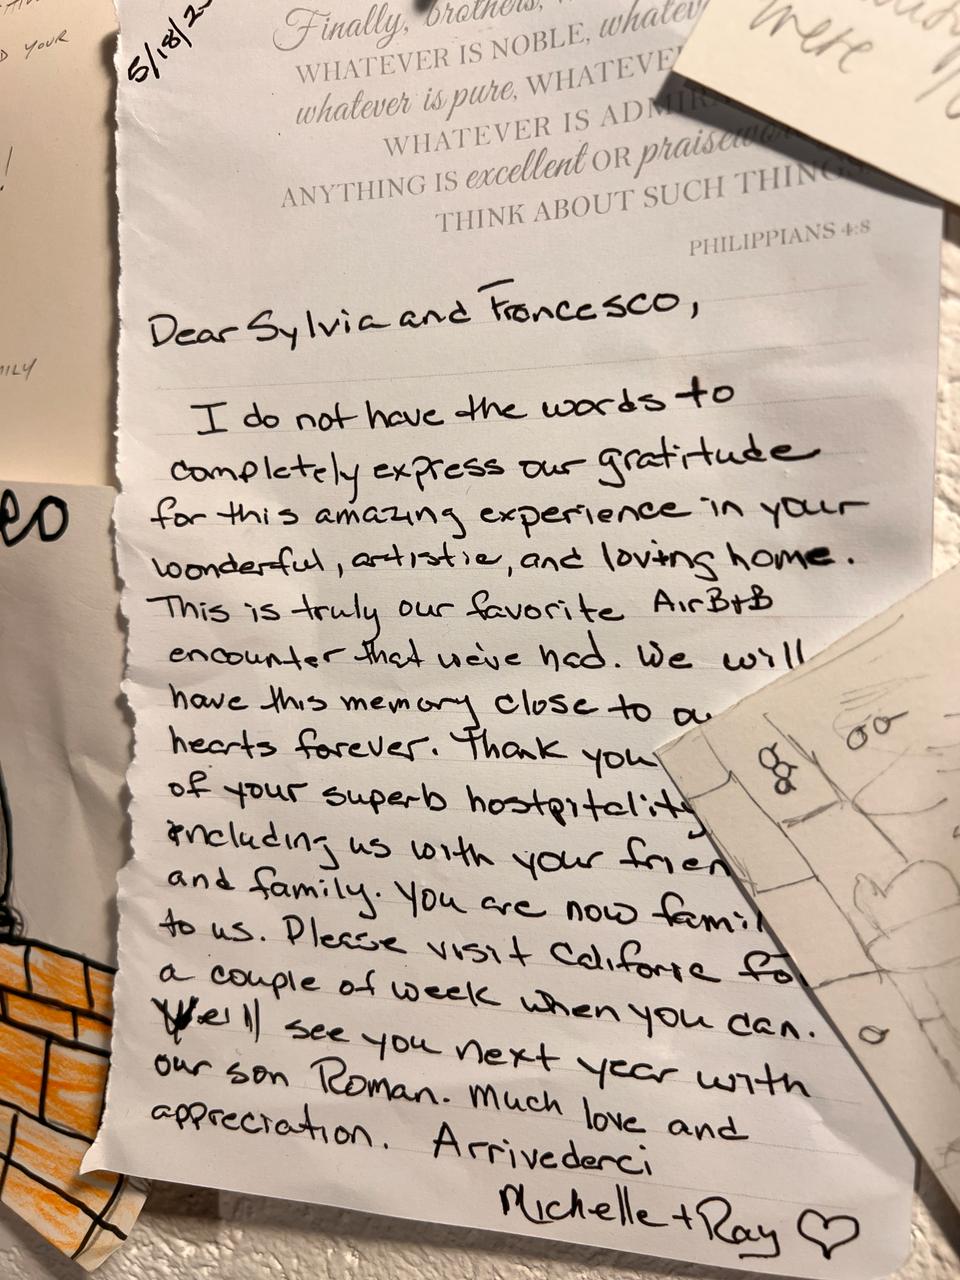 D YOUR
!
MILY
eo
5/18/2
Finally, brothers,
WHATEVER IS NOBLE, whatev
whatever is pure, WHATEVE
WHATEVER IS ADMIRA
ANYTHING IS excellent OR praisewor
THINK ABOUT SUCH THINGS
PHILIPPIANS 4:8
were
Dear Sylvia and Francesco,
I do not have the words to
completely express our gratitude
for this amazing experience in your
wonderful, artistic, and loving home.
This is truly our favorite AirB+B
encounter that we've had. We will
have this memory close to ou
hearts forever. Thank you
of your superb hostpitality
including us with your frien
and family. You are now famil
to us. Please visit Califorie for
a couple of week when you can.
We'll see you next year with
our son Roman. Much love and
appreciation. Arrivederci
Michelle + Ray ♡